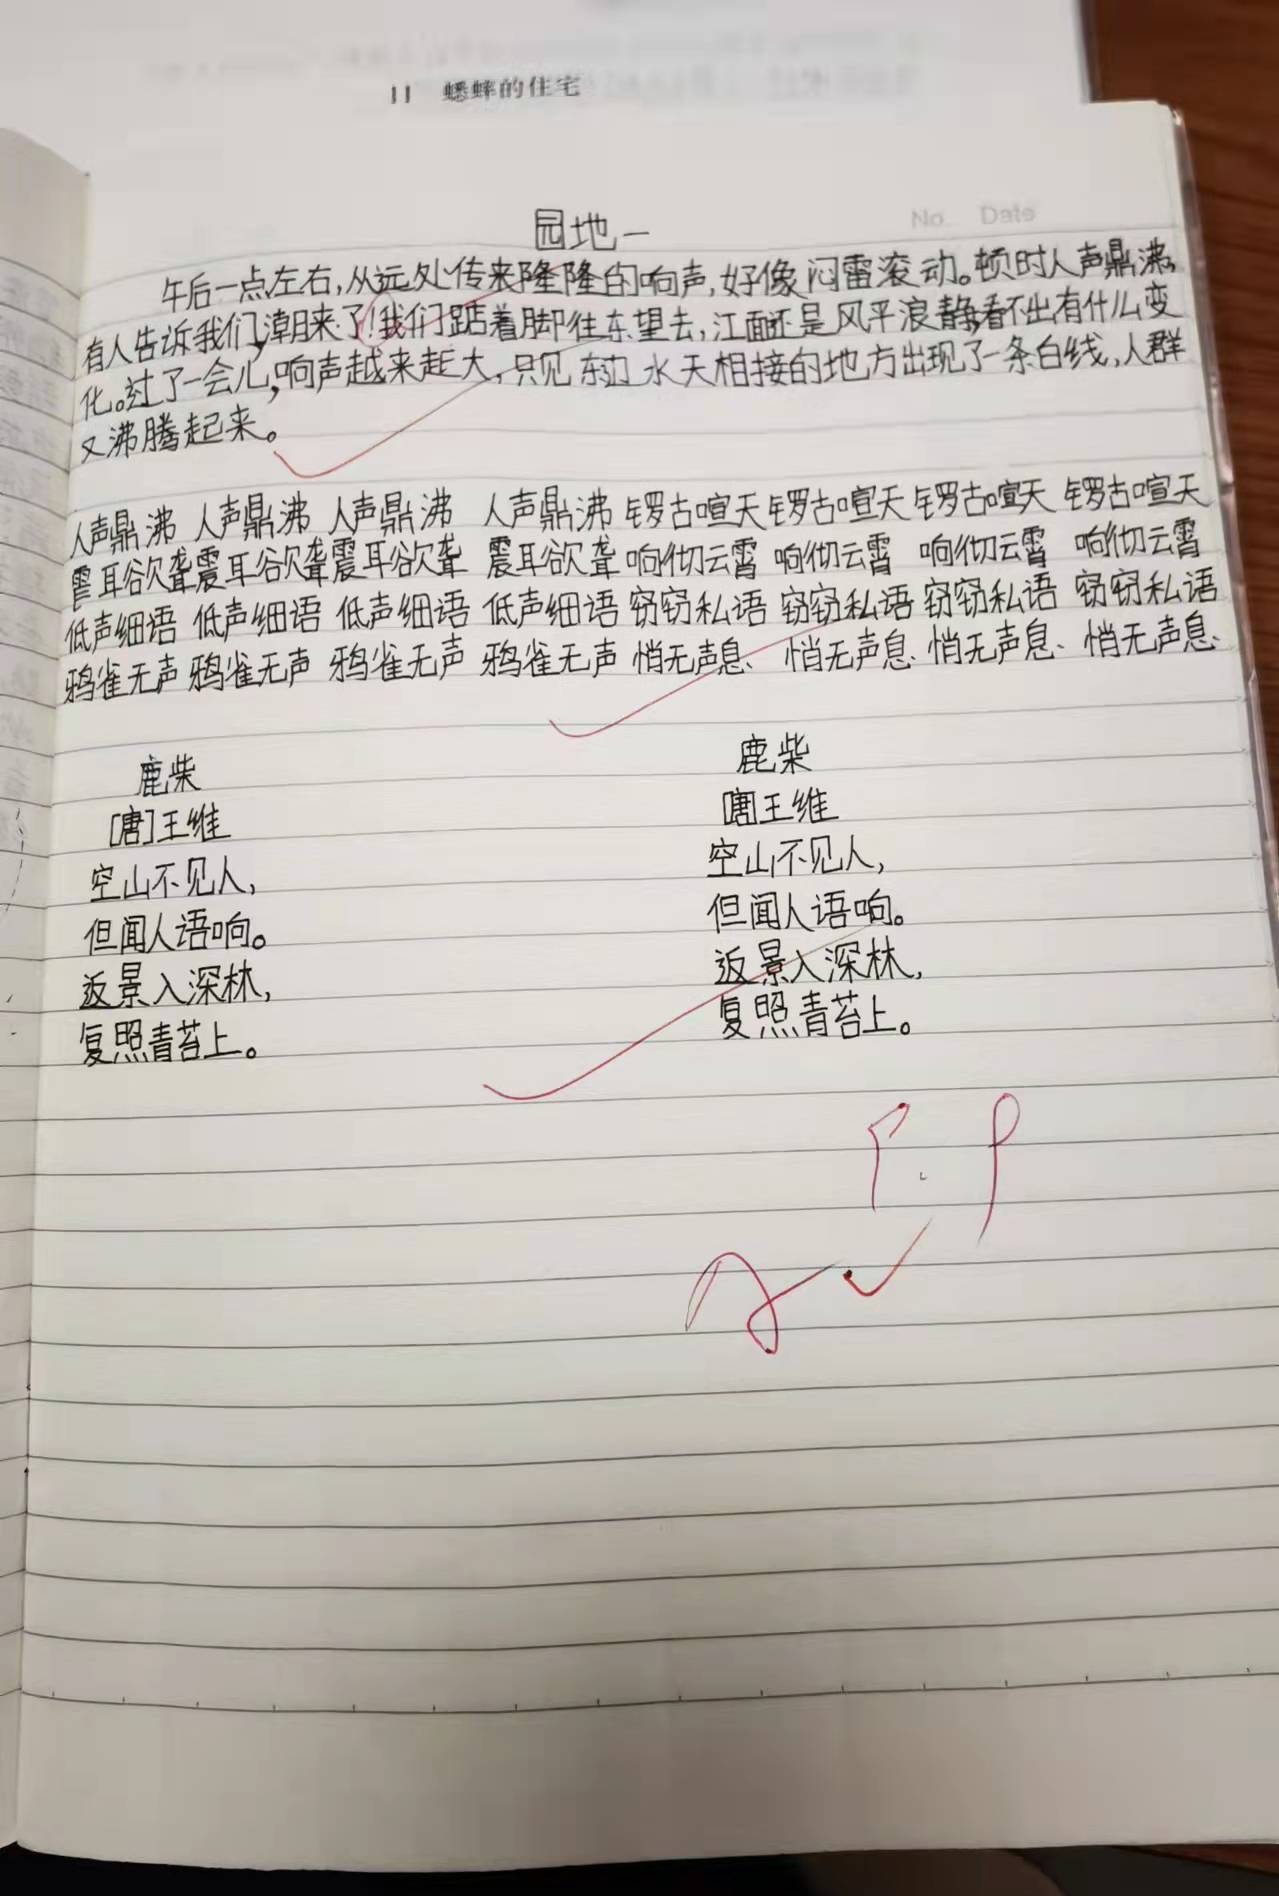 11 蟋蟀的住宅
No. Date
园地一
午后一点左右,从远处传来隆隆的响声,好像闷雷滚动。顿时人声鼎沸,
有人告诉我们,潮来了!我们踮着脚往东望去,江面还是风平浪静,看不出有什么变
化。过了一会儿,响声越来越大,只见东边水天相接的地方出现了一条白线,人群
又沸腾起来。
人声鼎沸 人声鼎沸 人声鼎沸 人声鼎沸 锣古喧天 锣古喧天 锣古喧天 锣古喧天
震耳欲聋 震耳欲聋 震耳欲聋 震耳欲聋 响彻云霄 响彻云霄 响彻云霄 响彻云霄
低声细语 低声细语 低声细语 低声细语 窃窃私语 窃窃私语 窃窃私语 窃窃私语
鸦雀无声 鸦雀无声 鸦雀无声 鸦雀无声 悄无声息、 悄无声息、 悄无声息、 悄无声息、
鹿柴
[唐]王维
空山不见人,
但闻人语响。
返景入深林,
复照青苔上。
鹿柴
[唐]王维
空山不见人,
但闻人语响。
返景入深林,
复照青苔上。